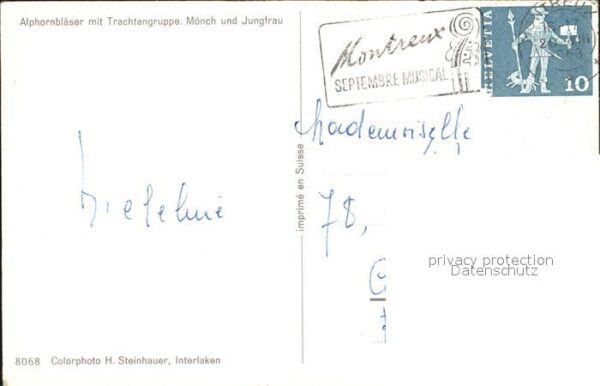 Alphornbläser mit Trachtengruppe. Mönch und Jungfrau
Montreux
SEPTEMBRE MUSICAL
HELVETIA
10
Mademoiselle
78,
imprimé en Suisse
privacy protection
Datenschutz
8068 Colorphoto H. Steinhauer, Interlaken